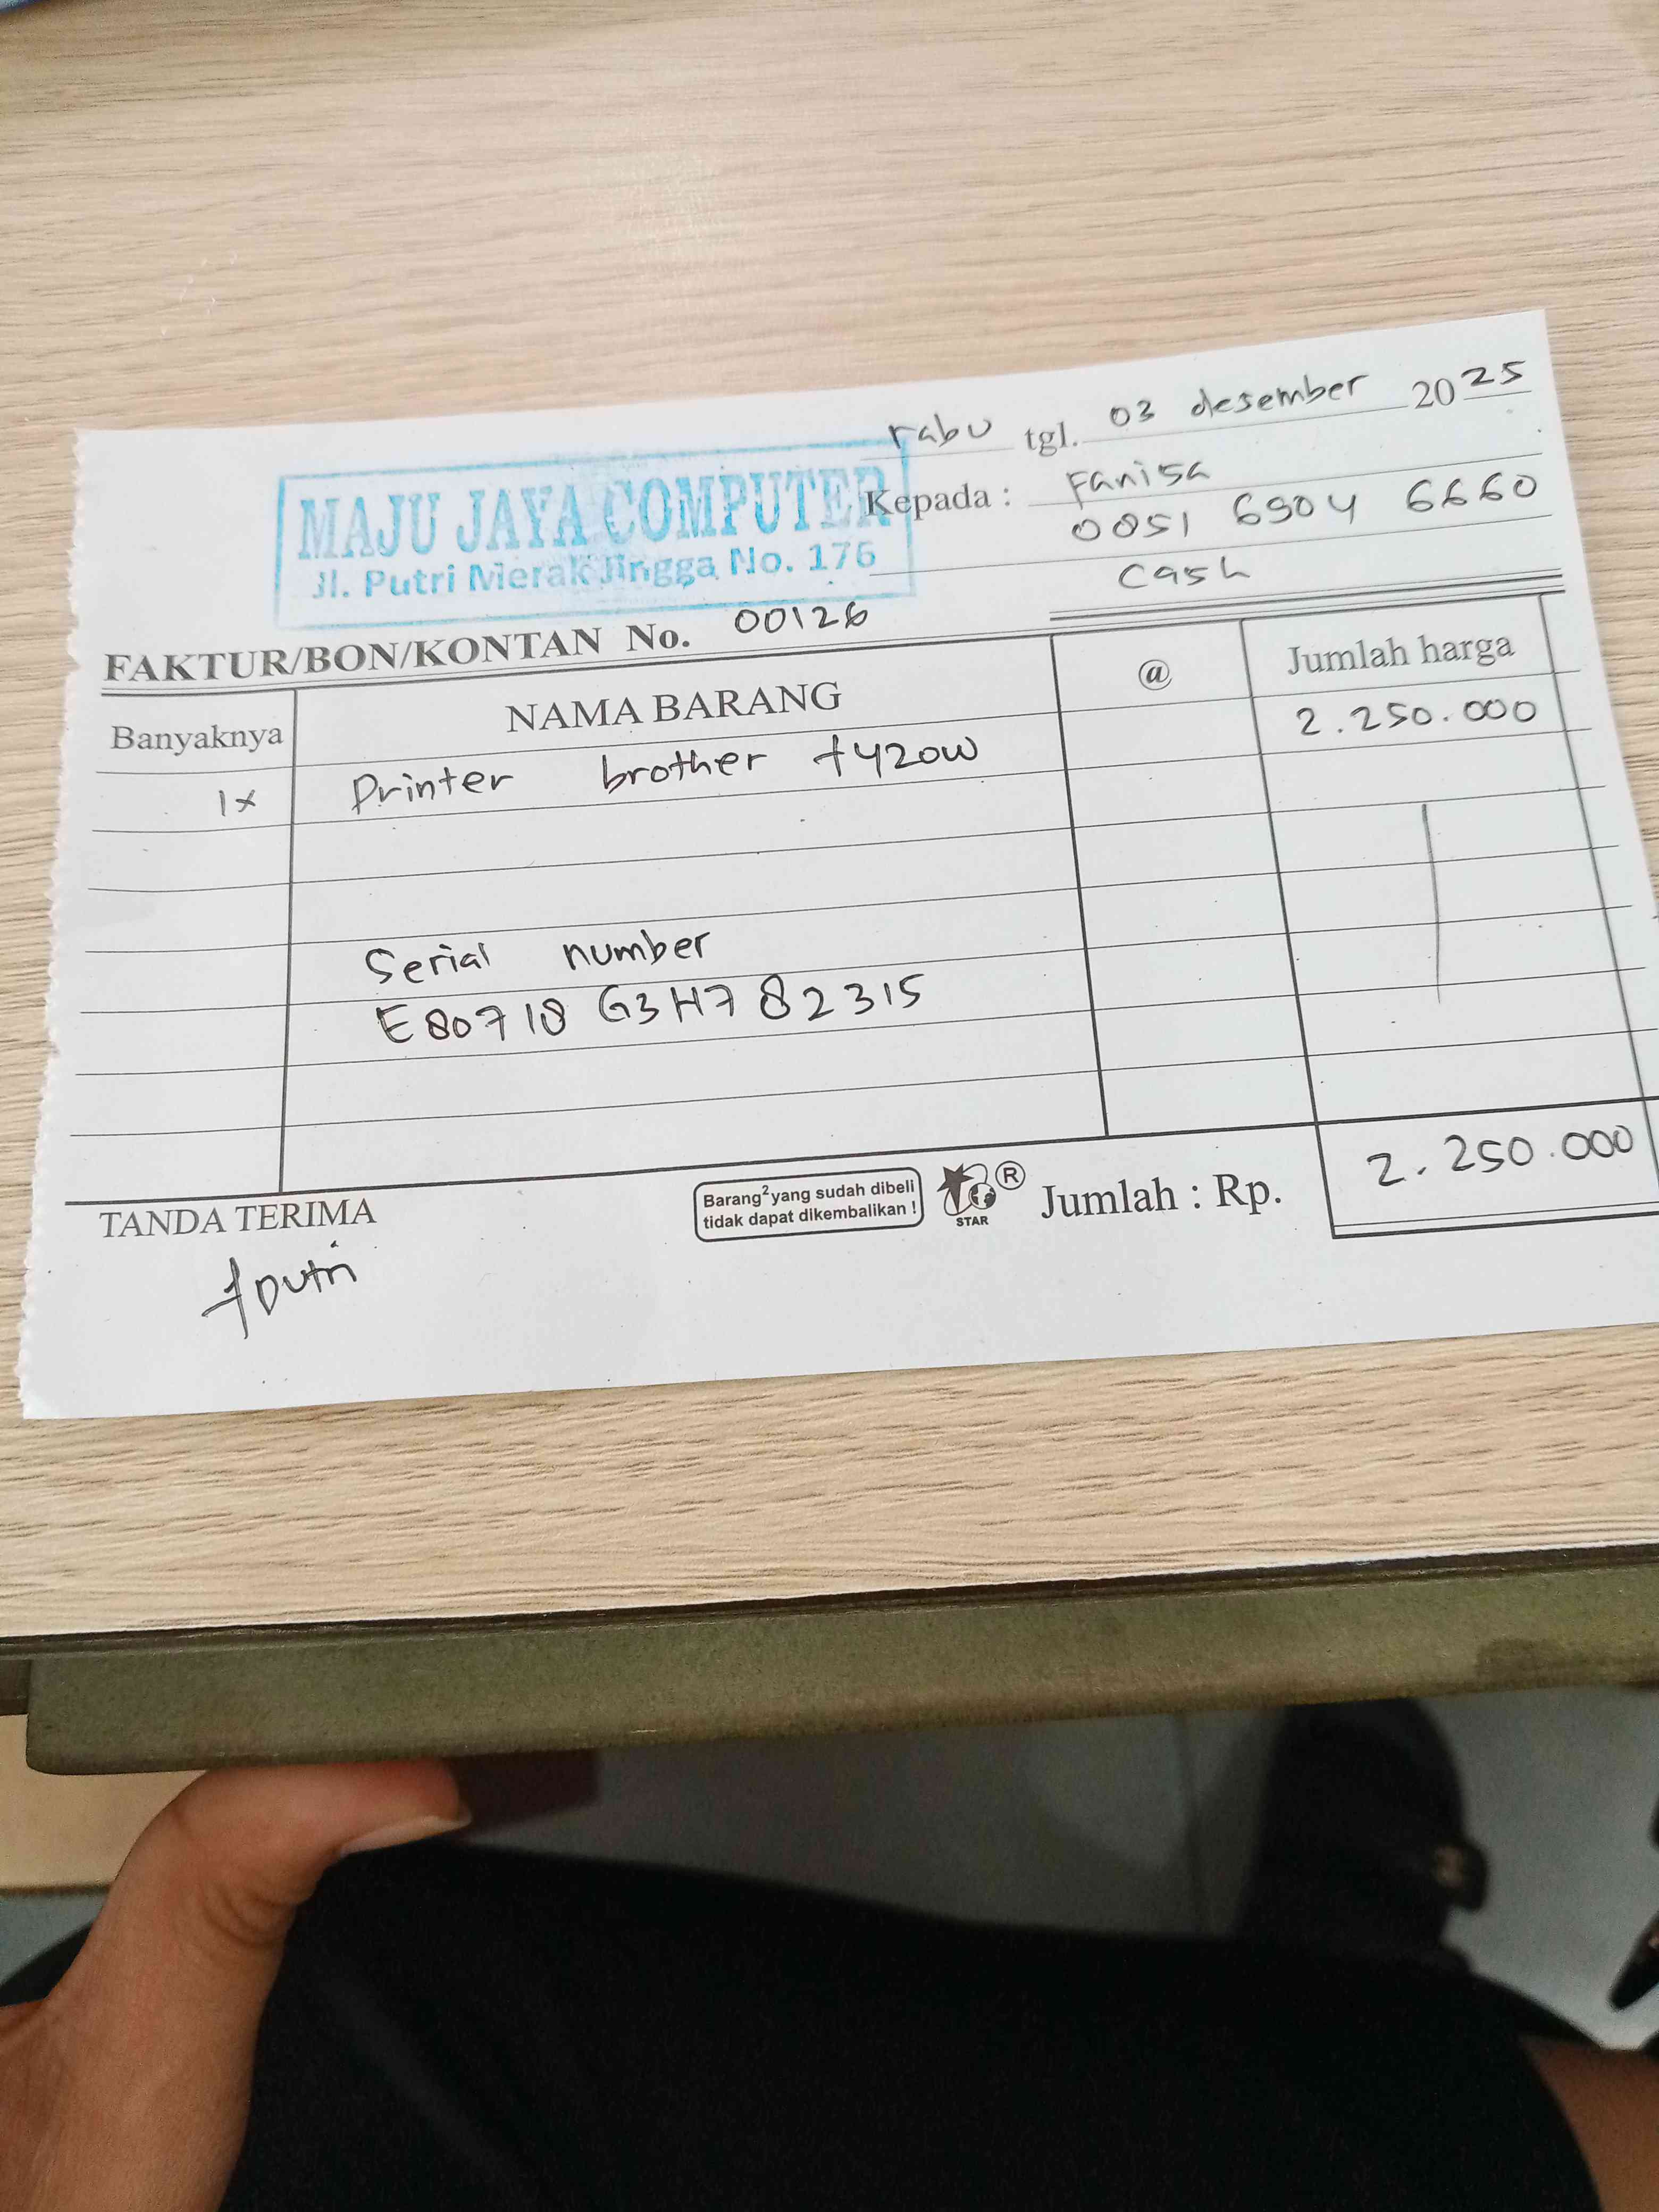 rabu tgl. 03 desember 2025
MAJU JAYA COMPUTER
Jl. Putri Merak Jingga No. 176
Kepada : Fanisa
0851 6904 6660
Cash
FAKTUR/BON/KONTAN No. 00126
Banyaknya NAMA BARANG @ Jumlah harga
1x Printer brother t420w 2.250.000
Serial number
E80718G3H782315
TANDA TERIMA
Barang² yang sudah dibeli
tidak dapat dikembalikan !
STAR ®
Jumlah : Rp. 2.250.000
putri